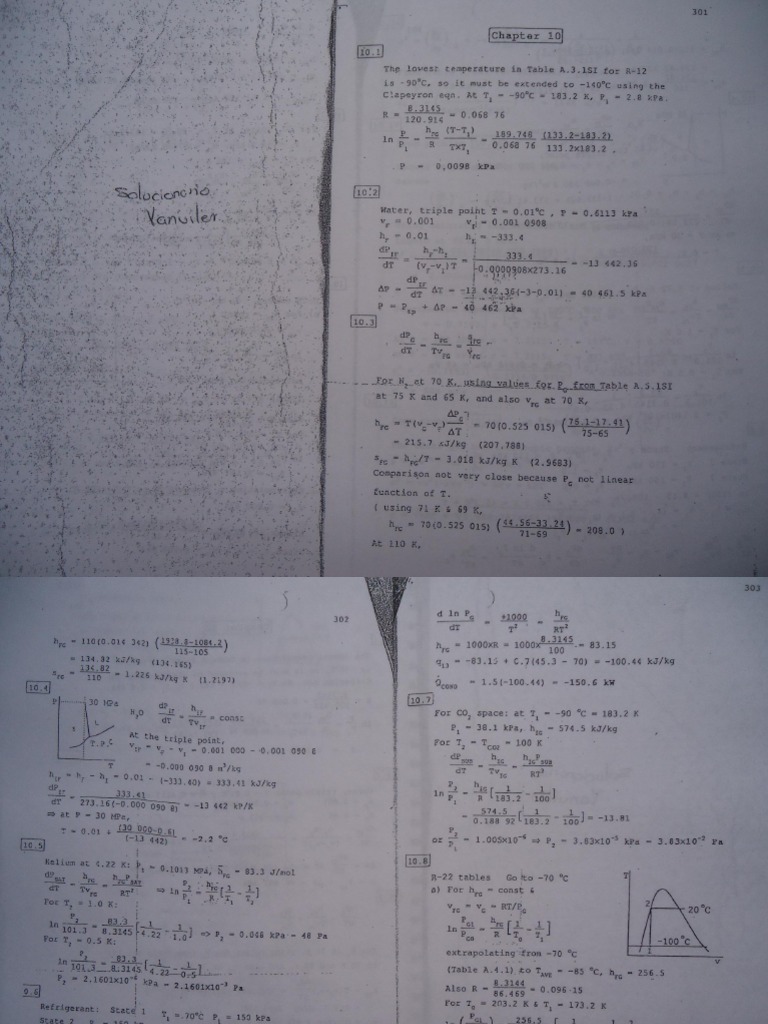 Solucionario
Vanwiler
301
Chapter 10
10.1
The lowest temperature in Table A.3.1SI for R-12
is -90°C, so it must be extended to -140°C using the
Clapeyron eqn. At T₁ = -90°C = 183.2 K, P₁ = 2.8 kPa.
R = 8.3145/120.914 = 0.068 76
ln P/P₁ = h_FG/R (T-T₁)/(T×T₁) = 189.748/0.068 76 (133.2-183.2)/(133.2×183.2) ,
P = 0.0098 kPa
10.2
Water, triple point T = 0.01°C , P = 0.6113 kPa
v_F = 0.001 v_I = 0.001 0908
h_F = 0.01 h_I = -333.4
dP_IF/dT = (h_F-h_I)/((v_F-v_I)T) = 333.4/(-0.0000908×273.16) = -13 442.36
ΔP = dP_IF/dT ΔT = -13 442.36(-3-0.01) = 40 461.5 kPa
P = P_tp + ΔP = 40 462 kPa
10.3
dP_G/dT = h_FG/(Tv_FG) = s_FG/v_FG
For N₂ at 70 K, using values for P_G from Table A.5.1SI
at 75 K and 65 K, and also v_FG at 70 K,
h_FG = T(v_G-v_F) ΔP_G/ΔT = 70(0.525 015) (76.1-17.41)/(75-65)
= 215.7 kJ/kg (207.788)
s_FG = h_FG/T = 3.018 kJ/kg K (2.9683)
Comparison not very close because P_G not linear
function of T.
( using 71 K & 69 K,
h_FG = 70(0.525 015) (44.56-33.24)/(71-69) = 208.0 )
At 110 K,
302
h_FG = 110(0.014 342) (1938.8-1084.2)/(115-105)
= 134.82 kJ/kg (134.165)
s_FG = 134.82/110 = 1.226 kJ/kg K (1.2197)
10.4
P 30 MPa
H₂O dP_IF/dT = h_IF/(Tv_IF) = const
L
T.P.
T
At the triple point,
v_IF = v_F - v_I = 0.001 000 - 0.001 090 8
= -0.000 090 8 m³/kg
h_IF = h_F - h_I = 0.01 - (-333.40) = 333.41 kJ/kg
dP_IF/dT = 333.41/(273.16(-0.000 090 8)) = -13 442 kP/K
⇒ at P = 30 MPa,
T = 0.01 + (30 000-0.6)/(-13 442) = -2.2 °C
10.5
Helium at 4.22 K: P₁ = 0.1013 MPa, h_FG = 83.3 J/mol
dP_SAT/dT = h_FG/(Tv_FG) = h_FG P_SAT/(RT²) ⇒ ln P₂/P₁ = h_FG/R [1/T₁ - 1/T₂]
For T₂ = 1.0 K:
ln P₂/101.3 = 83.3/8.3145 [1/4.22 - 1/1.0] => P₂ = 0.048 kPa = 48 Pa
For T₂ = 0.5 K:
ln P₂/101.3 = 83.3/8.3145 [1/4.22 - 1/0.5]
P₂ = 2.1601×10⁻⁶ kPa = 2.1601×10⁻³ Pa
Refrigerant: State 1 T₁ = 70°C P₁ = 150 kPa
State 2
303
d ln P_G/dT = +1000/T² = h_FG/RT²
h_FG = 1000×R = 1000× 8.3145/100 = 83.15
q₁₃ = -83.15 + 0.7(45.3 - 70) = -100.44 kJ/kg
Q̇_COND = 1.5(-100.44) = -150.6 kW
10.7
For CO₂ space: at T₁ = -90 °C = 183.2 K
P₁ = 38.1 kPa, h_IG = 574.5 kJ/kg
For T₂ = T_CO2 = 100 K
dP_SUB/dT = h_IG/(Tv_IG) = h_IG P_SUB/(RT²)
ln P₂/P₁ = h_IG/R [1/183.2 - 1/100]
= 574.5/0.188 92 [1/183.2 - 1/100] = -13.81
or P₂/P₁ = 1.005×10⁻⁶ ⇒ P₂ = 3.83×10⁻⁵ kPa = 3.83×10⁻² Pa
10.8
R-22 tables Go to -70 °C
a) For h_FG = const &
v_FG = v_G = RT/P_G
ln P_G1/P_G0 = h_FG/R [1/T₀ - 1/T₁]
T
2
20°C
-100°C
1
v
extrapolating from -70 °C
(Table A.4.1) to T_AVE = -85 °C, h_FG = 256.5
Also R = 8.3144/86.469 = 0.096 15
For T₀ = 203.2 K & T₁ = 173.2 K